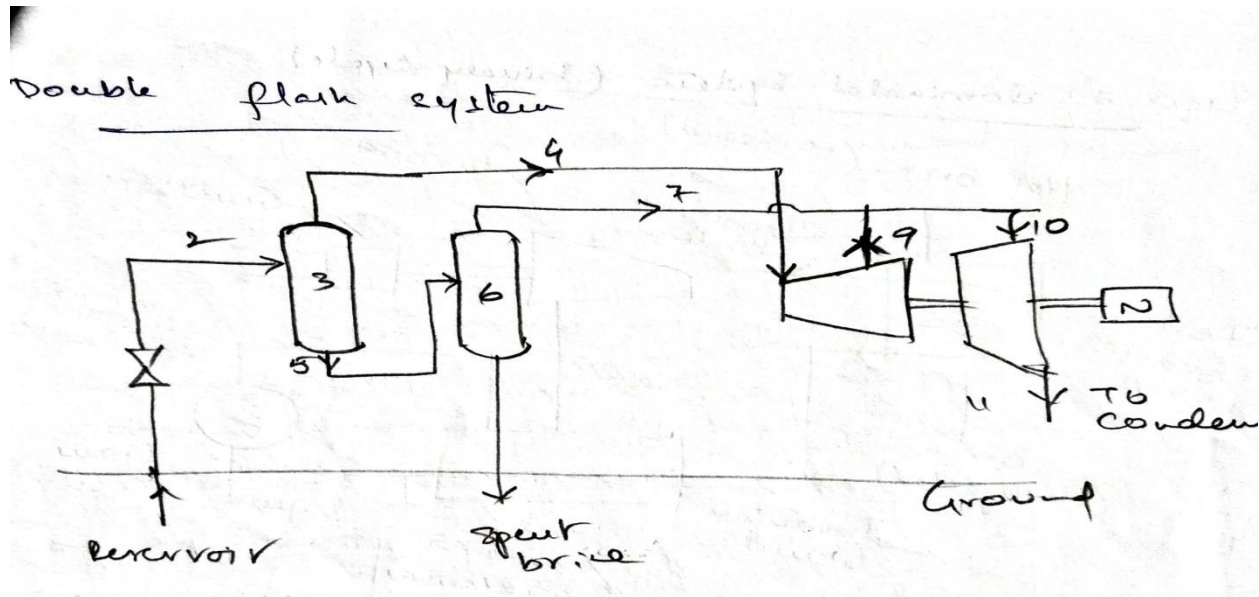 Double flash system
4
2
7
9
10
3
6
5
N
11
To
conden
Ground
Reservoir
Spent
brine